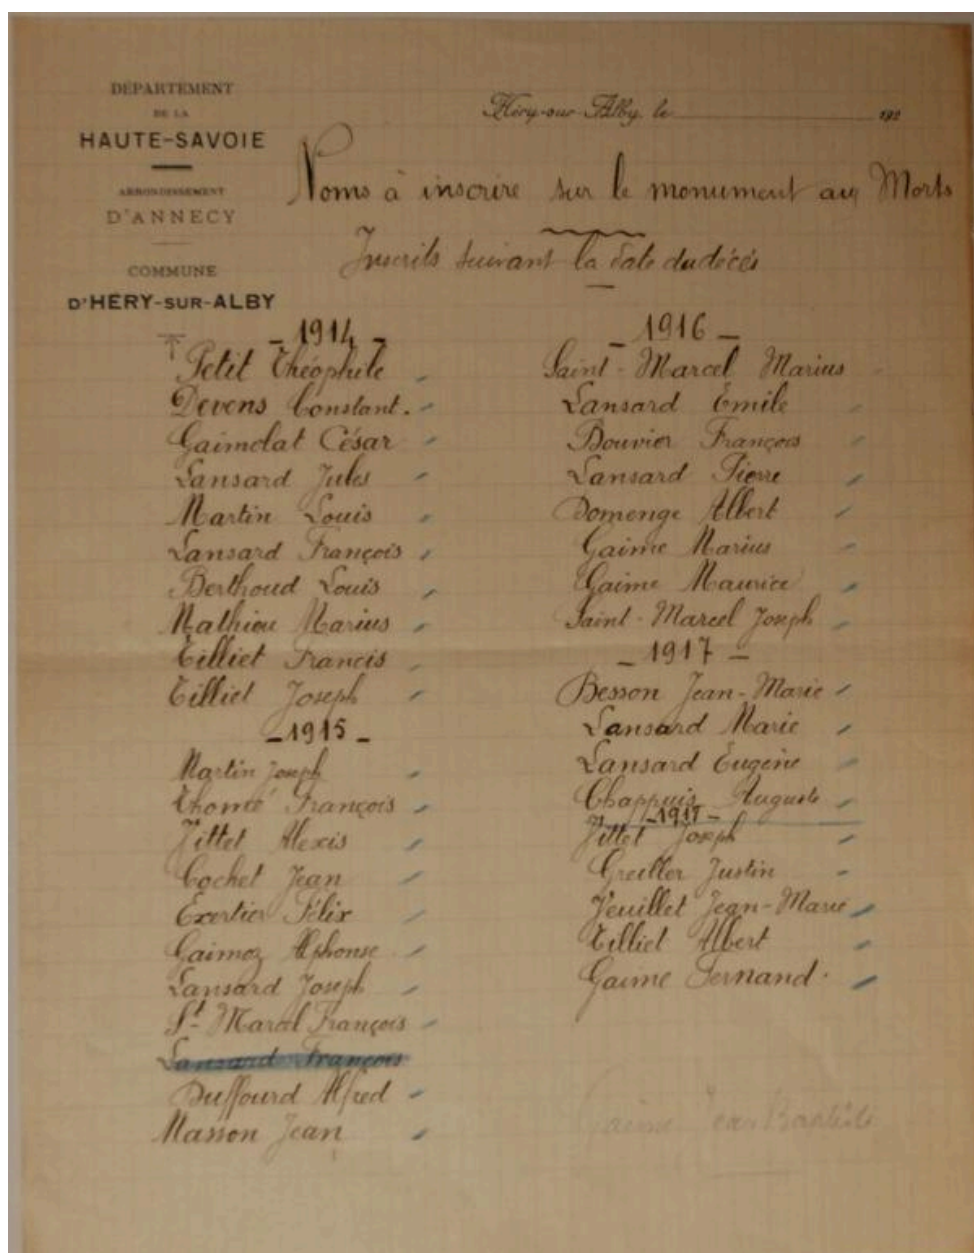 DÉPARTEMENT
DE LA
HAUTE-SAVOIE
ARRONDISSEMENT
D'ANNECY
COMMUNE
D'HÉRY-SUR-ALBY
Héry-sur-Alby, le 192
Noms à inscrire sur le monument aux Morts
Inscrits suivant la date du décès
- 1914 -
Petit Théophile
Devens Constant.
Gaimelat César
Lansard Jules
Martin Louis
Lansard François
Berthoud Louis
Mathieu Marius
Tilliet Francis
Tilliet Joseph
- 1915 -
Martin Joseph
Thomé François
Jittet Alexis
Cochet Jean
Exertier Félix
Gaimoz Alphonse
Lansard Joseph
St Marcel François
Lansard François
Duffourd Alfred
Masson Jean
- 1916 -
Saint-Marcel Marius
Lansard Emile
Bouvier François
Lansard Pierre
Domenge Albert
Gaime Marius
Gaime Maurice
Saint-Marcel Joseph
- 1917 -
Besson Jean-Marie
Lansard Marie
Lansard Eugène
Chappuis Auguste
- 1918 -
Jittet Joseph
Greiller Justin
Veuillet Jean-Marie
Tilliet Albert
Gaime Fernand.
Gaime Jean Baptiste